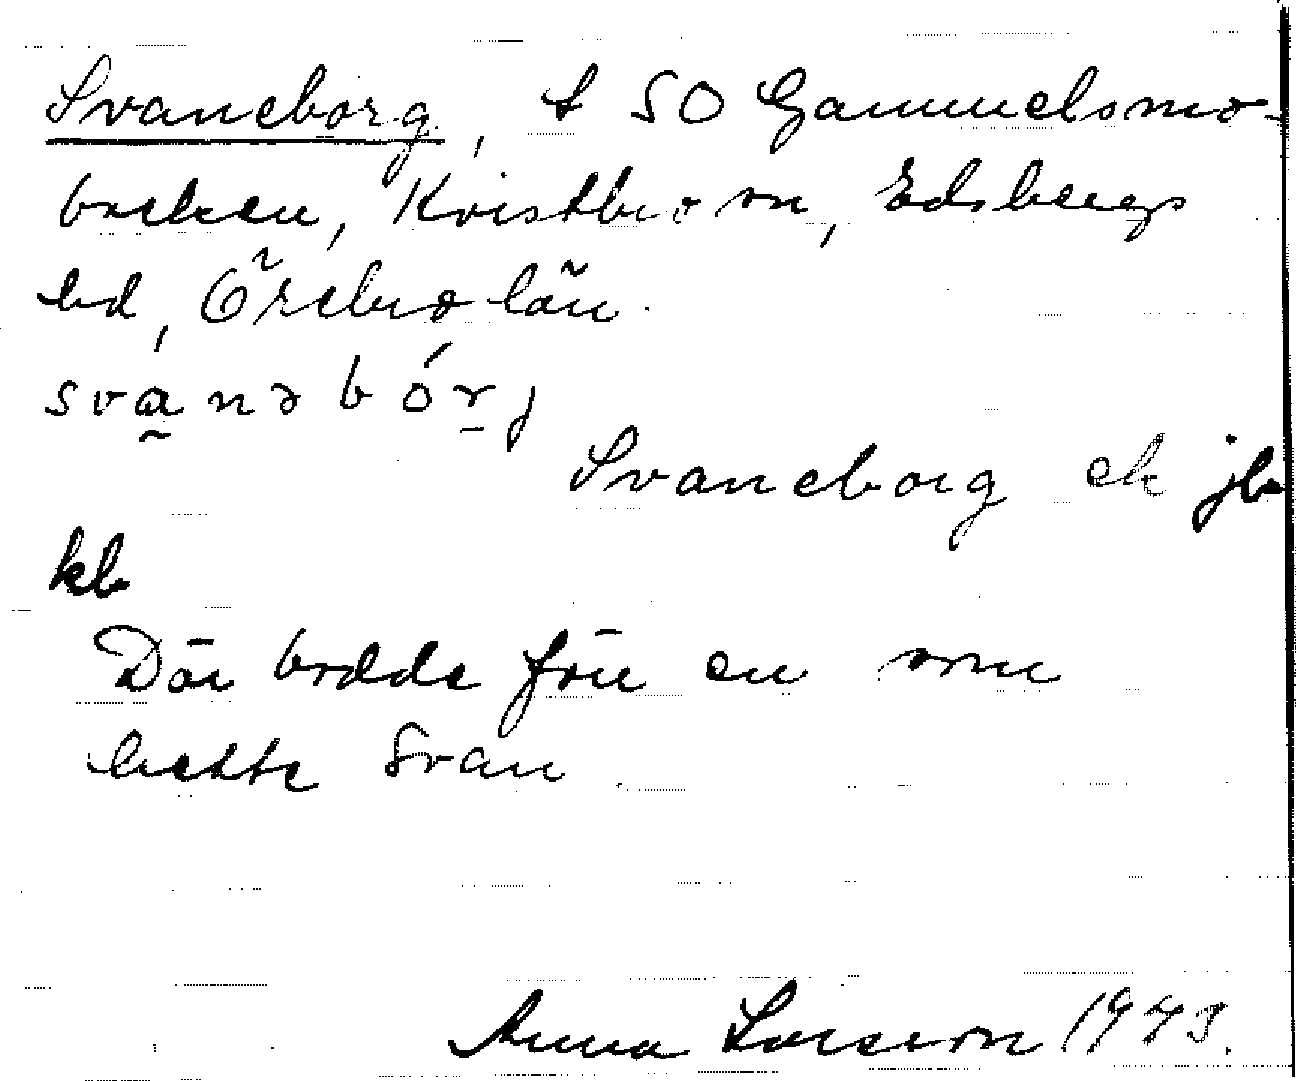 Svaneborg, t SO Gammelsmo-
backen, Kvistbro sn, Edsbergs
hd, Örebro län.
svanə bórj
Svaneborg ek jb
kb
Där bodde förr en som
hette Svan
Anna Larsson 1943.